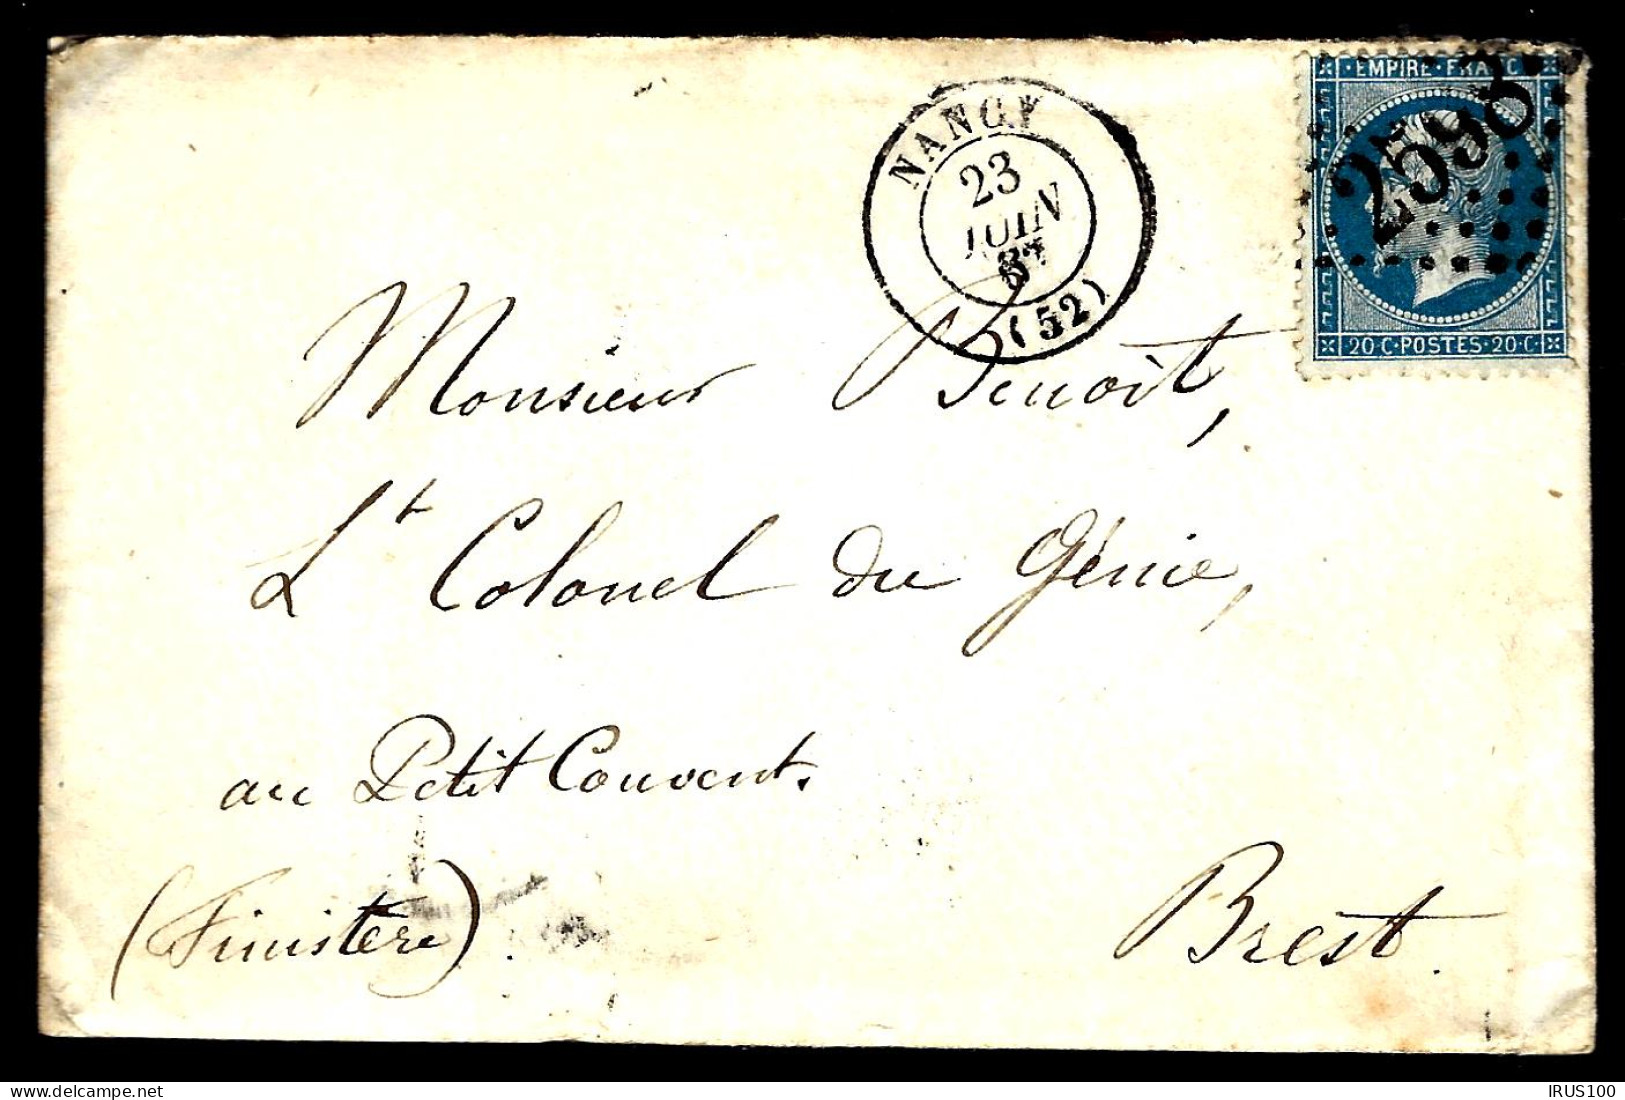 · EMPIRE · FRANC
2598
20 C · POSTES · 20 C ·
NANCY
23
JUIN
67
(52)
Monsieur Benoît,
Lt Colonel du Génie,
au Petit Couvent.
(Finistère).
Brest.
www.delcampe.net
IRUS100